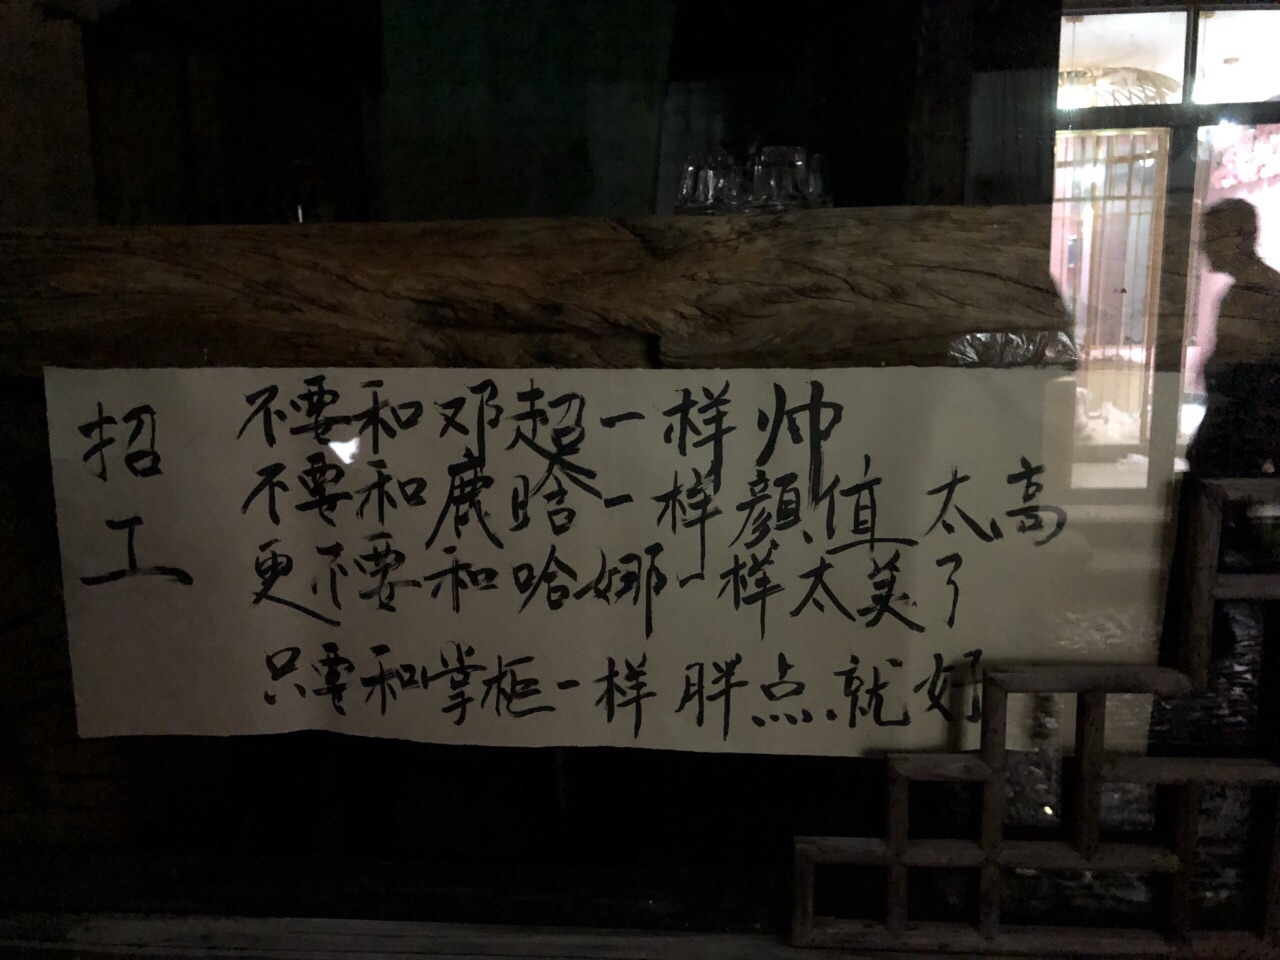 招工
不要和邓超一样帅
不要和鹿晗一样顔值太高
更不要和哈娜一样太美了
只要和掌柜一样胖点就好